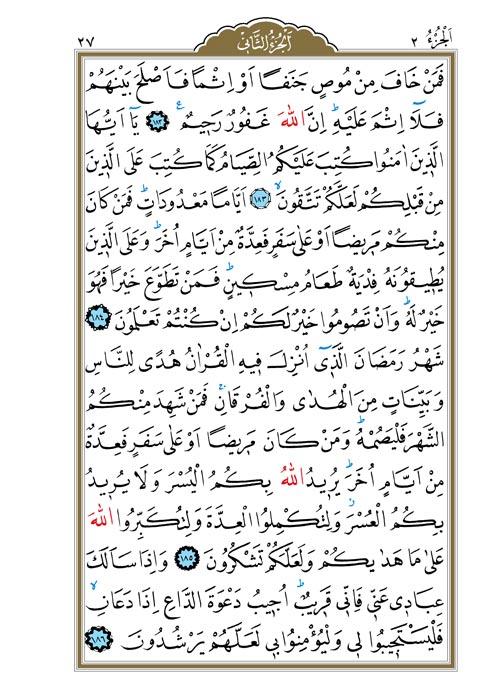 اَلْجُزْءُ ٢
اَلْجُزْءُ الثَّانِي
٢٧
فَمَنْ خَافَ مِنْ مُوصٍ جَنَفًا اَوْ اِثْمًا فَاَصْلَحَ بَيْنَهُمْ
فَلَٓا اِثْمَ عَلَيْهِۜ اِنَّ اللّٰهَ غَفُورٌ رَحِيمٌ۟ ﴿١٨٢﴾ يَٓا اَيُّهَا
الَّذِينَ اٰمَنُوا كُتِبَ عَلَيْكُمُ الصِّيَامُ كَمَا كُتِبَ عَلَى الَّذِينَ
مِنْ قَبْلِكُمْ لَعَلَّكُمْ تَتَّقُونَۙ ﴿١٨٣﴾ اَيَّامًا مَعْدُودَاتٍۜ فَمَنْ كَانَ
مِنْكُمْ مَرِيضًا اَوْ عَلٰى سَفَرٍ فَعِدَّةٌ مِنْ اَيَّامٍ اُخَرَۜ وَعَلَى الَّذِينَ
يُطِيقُونَهُ فِدْيَةٌ طَعَامُ مِسْكِينٍۜ فَمَنْ تَطَوَّعَ خَيْرًا فَهُوَ
خَيْرٌ لَهُۜ وَاَنْ تَصُومُوا خَيْرٌ لَكُمْ اِنْ كُنْتُمْ تَعْلَمُونَ ﴿١٨٤﴾
شَهْرُ رَمَضَانَ الَّذِٓي اُنْزِلَ فِيهِ الْقُرْاٰنُ هُدًى لِلنَّاسِ
وَبَيِّنَاتٍ مِنَ الْهُدٰى وَالْفُرْقَانِۚ فَمَنْ شَهِدَ مِنْكُمُ
الشَّهْرَ فَلْيَصُمْهُۜ وَمَنْ كَانَ مَرِيضًا اَوْ عَلٰى سَفَرٍ فَعِدَّةٌ
مِنْ اَيَّامٍ اُخَرَۜ يُرِيدُ اللّٰهُ بِكُمُ الْيُسْرَ وَلَا يُرِيدُ
بِكُمُ الْعُسْرَۘ وَلِتُكْمِلُوا الْعِدَّةَ وَلِتُكَبِّرُوا اللّٰهَ
عَلٰى مَا هَدٰيكُمْ وَلَعَلَّكُمْ تَشْكُرُونَ ﴿١٨٥﴾ وَاِذَا سَاَلَكَ
عِبَادِي عَنِّي فَاِنِّي قَرِيبٌۜ اُجِيبُ دَعْوَةَ الدَّاعِ اِذَا دَعَانِۙ
فَلْيَسْتَجِيبُوا لِي وَلْيُؤْمِنُوا بِي لَعَلَّهُمْ يَرْشُدُونَ ﴿١٨٦﴾